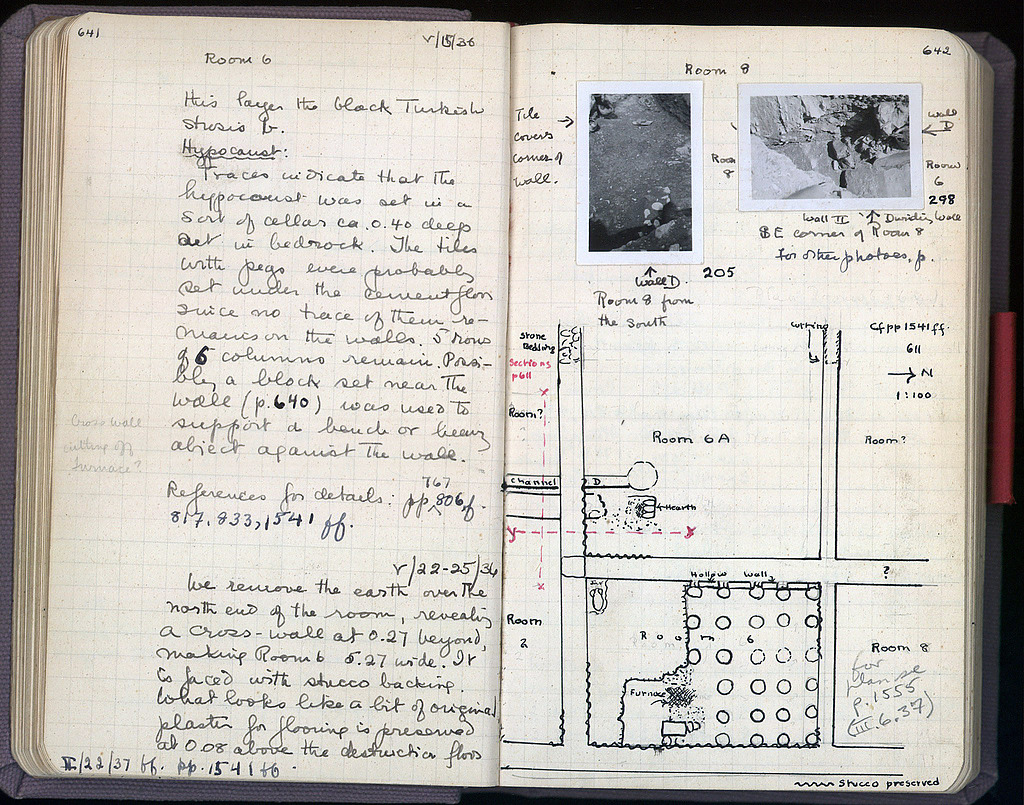 641
V/15/36
Room 6
This layer the black Turkish
strosis b.
Hypocaust:
Traces indicate that the
hypocaust was set in a
sort of cellar ca. 0.40 deep
cut in bedrock. The tiles
with pegs were probably
set under the cement floor
since no trace of them re-
mains on the walls. 5 rows
of 6 columns remain. Possi-
bly a block set near the
wall (p.640) was used to
support a bench or heavy
object against the wall.
Cross wall
cutting off
furnace?
References for details: pp. 806 f.
767
817, 833, 1541 ff.
V/22-25/36
We remove the earth over the
north end of the room, revealing
a cross-wall at 0.27 beyond,
making Room 6 5.27 wide. It
is faced with stucco backing.
What looks like a bit of original
plaster for flooring is preserved
at 0.08 above the destruction floor
II/22/37 ff. pp. 1541 ff.
642
Room 8
Tile
covers
corner of
wall.
Wall D
205
Room 8 from
the South
Room
8
Wall
D
Room
6
298
Wall II
Dividing Wall
SE corner of Room 8
For other photos, p.
Stone
Bedding
Sections
p611
Room?
Cutting
Cf pp 1541 ff.
611
N
1:100
Room 6A
Room?
Channel
D
Hearth
Hollow Wall
?
Room
2
Room 6
Furnace
Room 8
for
plan see
p. 1555
(III.6.37)
Stucco preserved